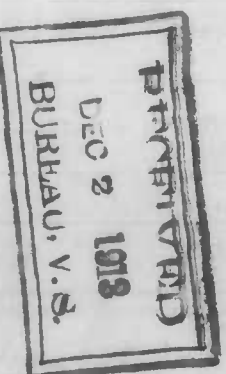 RECEIVED
DEC 2 1918
BUREAU, V. S.